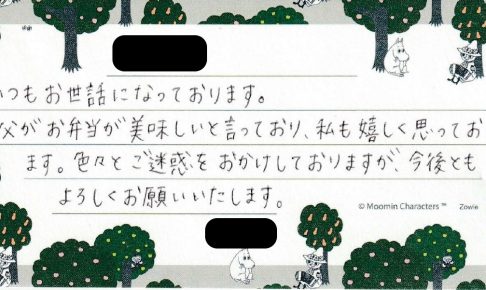 つもお世話になっております。
父がお弁当が美味しいと言っており、私も嬉しく思ってお
ます。色々とご迷惑をおかけしておりますが、今後とも
よろしくお願いいたします。
© Moomin Characters™ Zowie